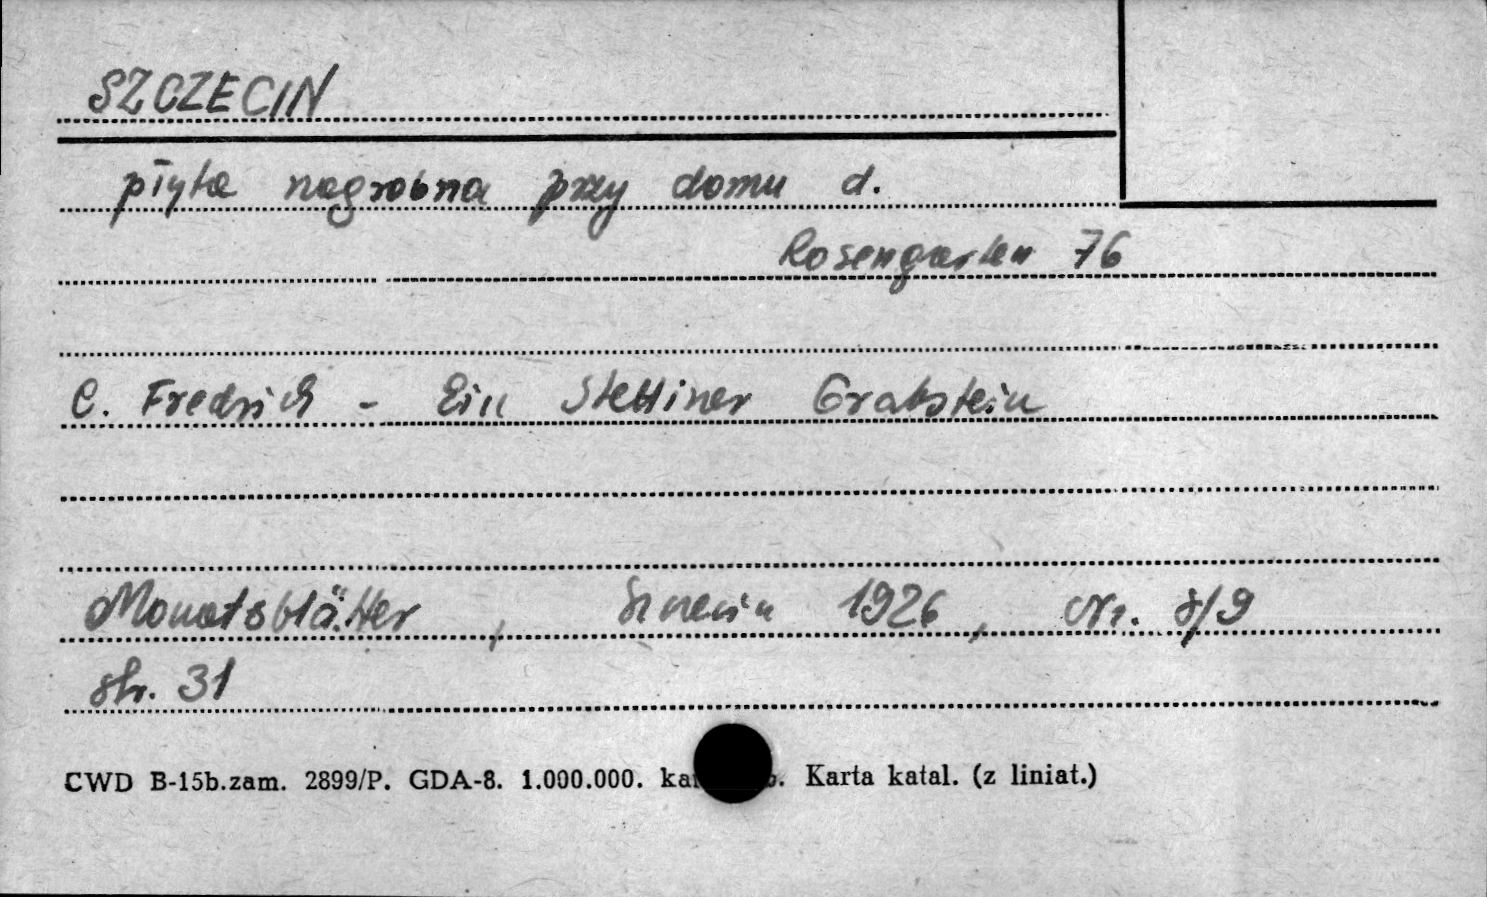 SZCZECIN
płyta nagrobna przy domu d.
Rosengarten 76
C. Fredrich - Ein Stettiner Grabstein
Monatsblätter, Szczecin 1926, Nr. 8/9
str. 31
CWD B-15b.zam. 2899/P. GDA-8. 1.000.000. Karta katal. (z liniat.)